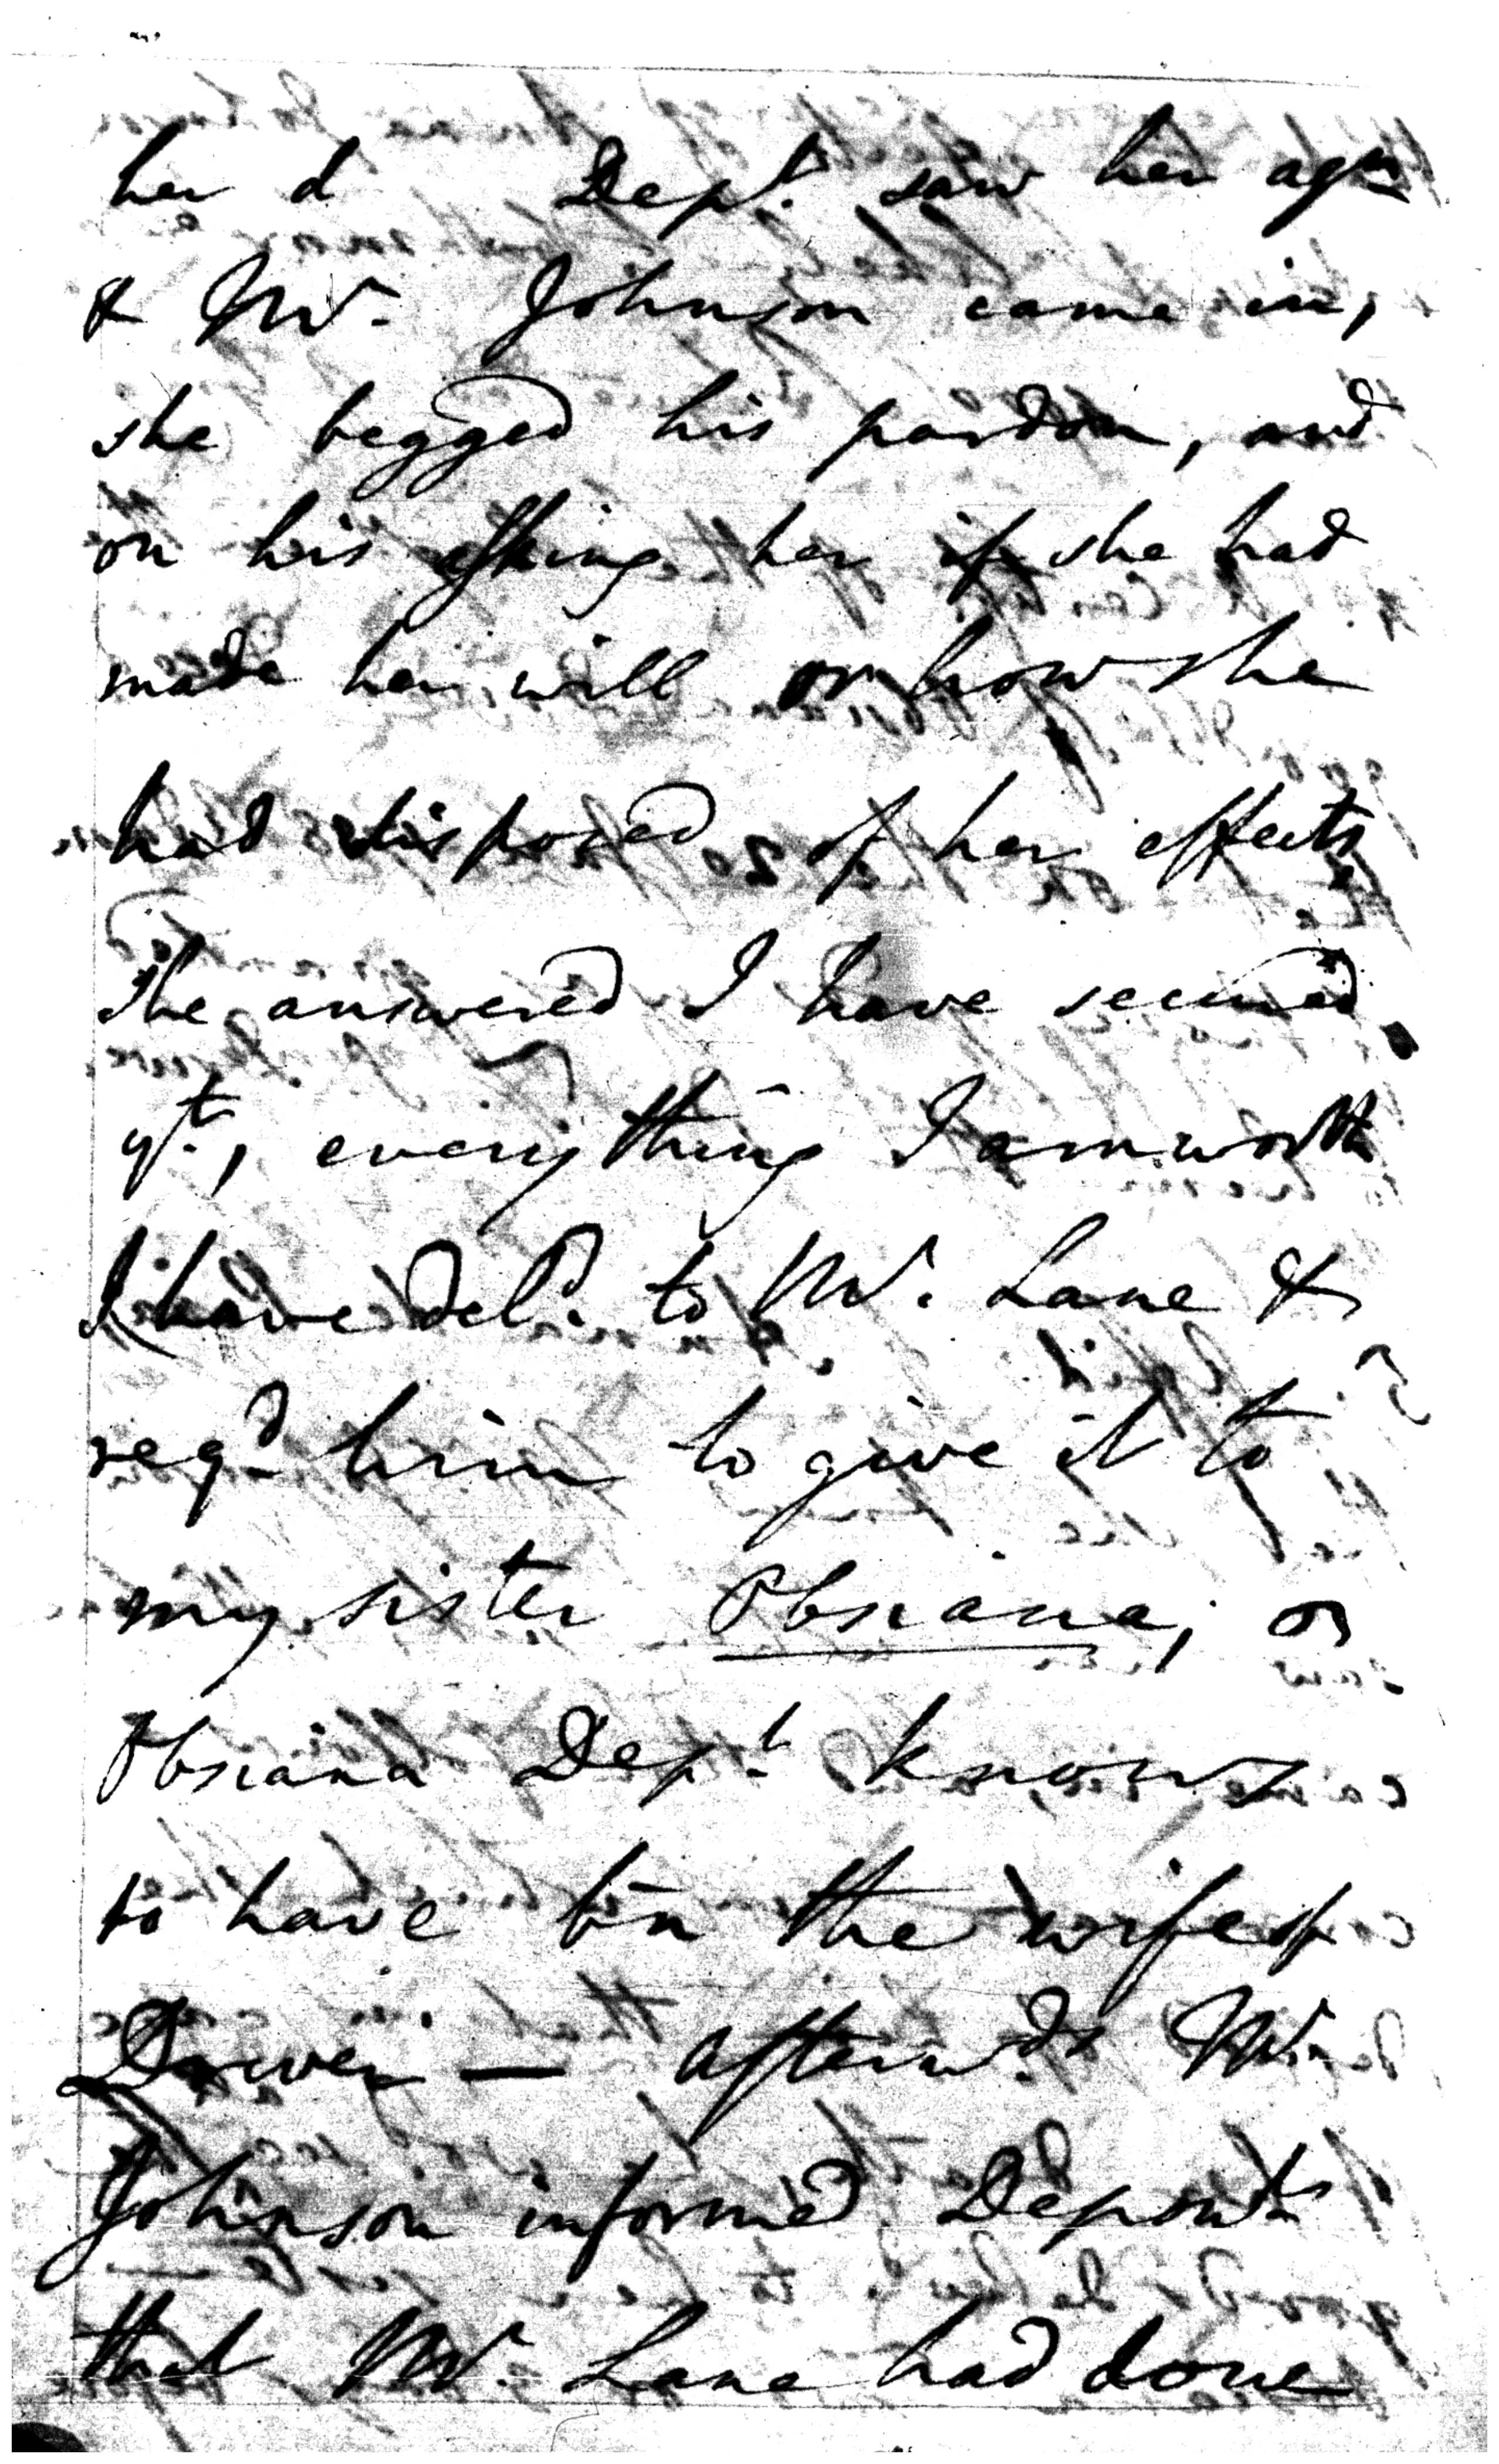 her d Dept. saw her agn
& Mr. Johnson came in,
she begged his pardon, and
on his asking her if she had
made her will or how she
had disposed of her effects
she answered I have secured
yt, everything I am worth
I have deld. to Mr. Lane &
reqd him to give it to
my sister Obsiana, or
Obsiana Dept. knows
to have bn the wife of
— afterwds Mr.
Johnson informed Deponts
that Mr. Lane had done